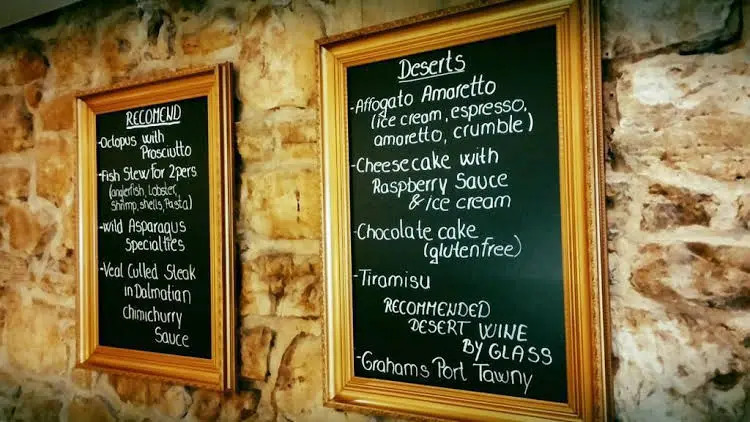 RECOMEND
-Octopus with
Prosciutto
-Fish Stew For 2pers
(anglerfish, Lobster,
Shrimp, shells, Pasta)
-Wild Asparagus
Specialties
-Veal Culled Steak
in Dalmatian
Chimichurry
Sauce
Deserts
-Affogato Amaretto
(ice cream, espresso,
amoretto, crumble)
-Cheesecake with
Raspberry Sauce
& ice cream
-Chocolate cake
(glutenfree)
-Tiramisu
RECOMMENDED
DESERT WINE
BY GLASS
-Grahams Port Tawny